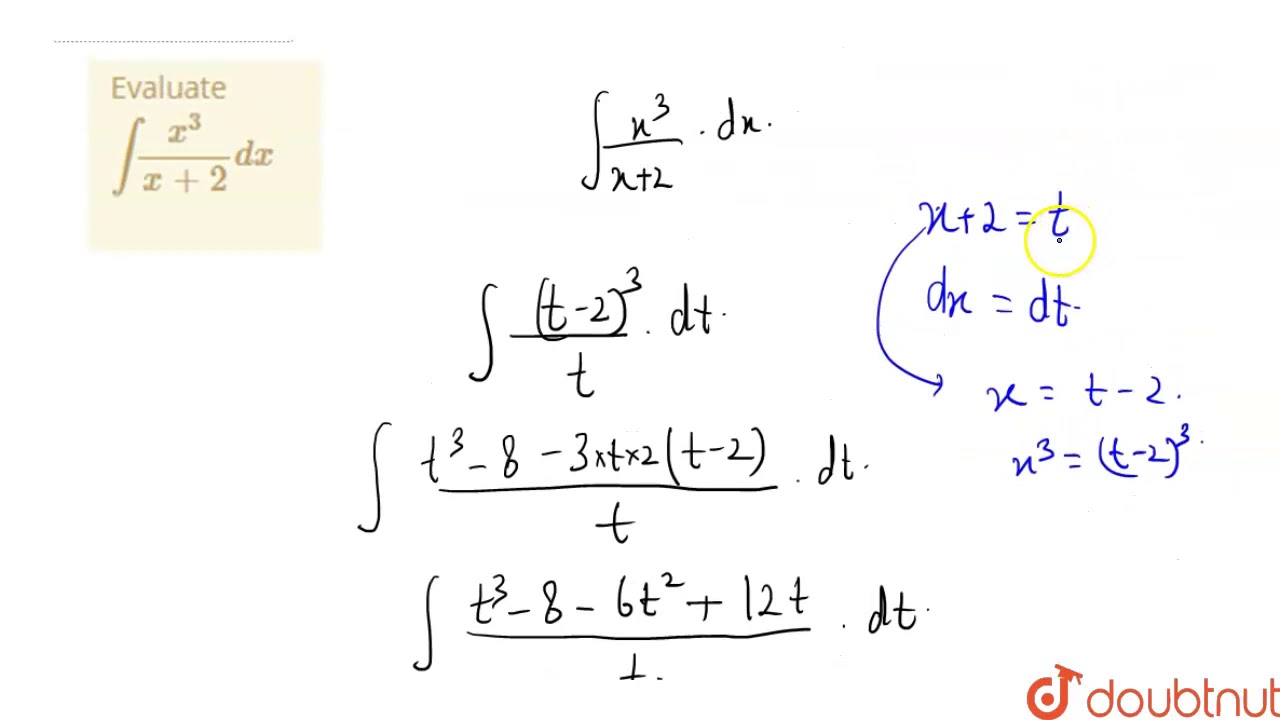 Evaluate
∫ x³/(x + 2) dx
∫ x³/(x+2) . dx.
x+2 = t
dx = dt.
∫ (t-2)³/t . dt.
x = t - 2.
x³ = (t-2)³.
∫ (t³ - 8 - 3×t×2(t-2))/t . dt.
∫ (t³ - 8 - 6t² + 12t)/t. . dt.
doubtnut